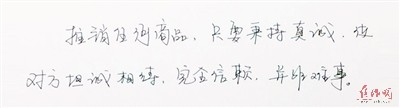 推销任何商品,只要秉持真诚,使
对方坦诚相待,完全信赖,并非难事。